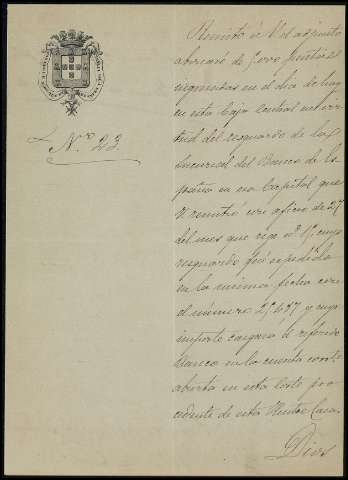 Nº 23.
Remito á V. el adjunto
abonaré de 5.000 pesetas
ingresadas en el día de hoy
en esta Caja Central en vir-
tud del resguardo de la
Sucursal del Banco de Es-
paña en esa Capital que
V. remitió con oficio de 27
del mes que rige nº 19, cuyo
resguardo fué expedido
en la misma fecha con
el número 25.657 y cuyo
importe cargará el referido
Banco en la cuenta corrte
abierta en esta Corte pro-
cedente de esta Renta. Caso
Dios